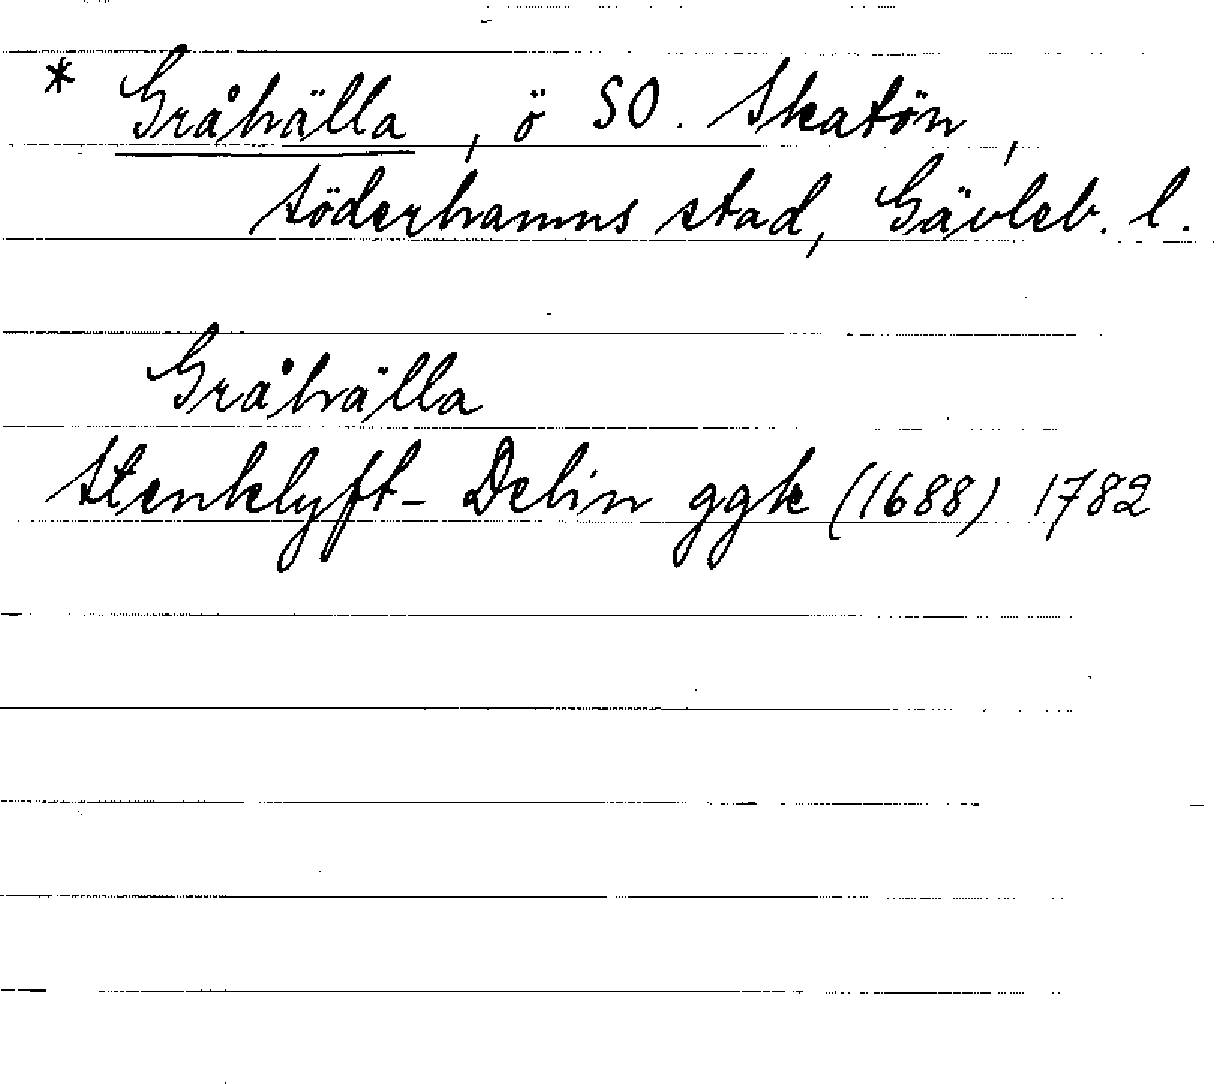 * Gråhälla, ö SO. Skatön,
Söderhamns stad, Gävleb. l.
Gråhälla
Stenklyft- Delin ggk (1688) 1782